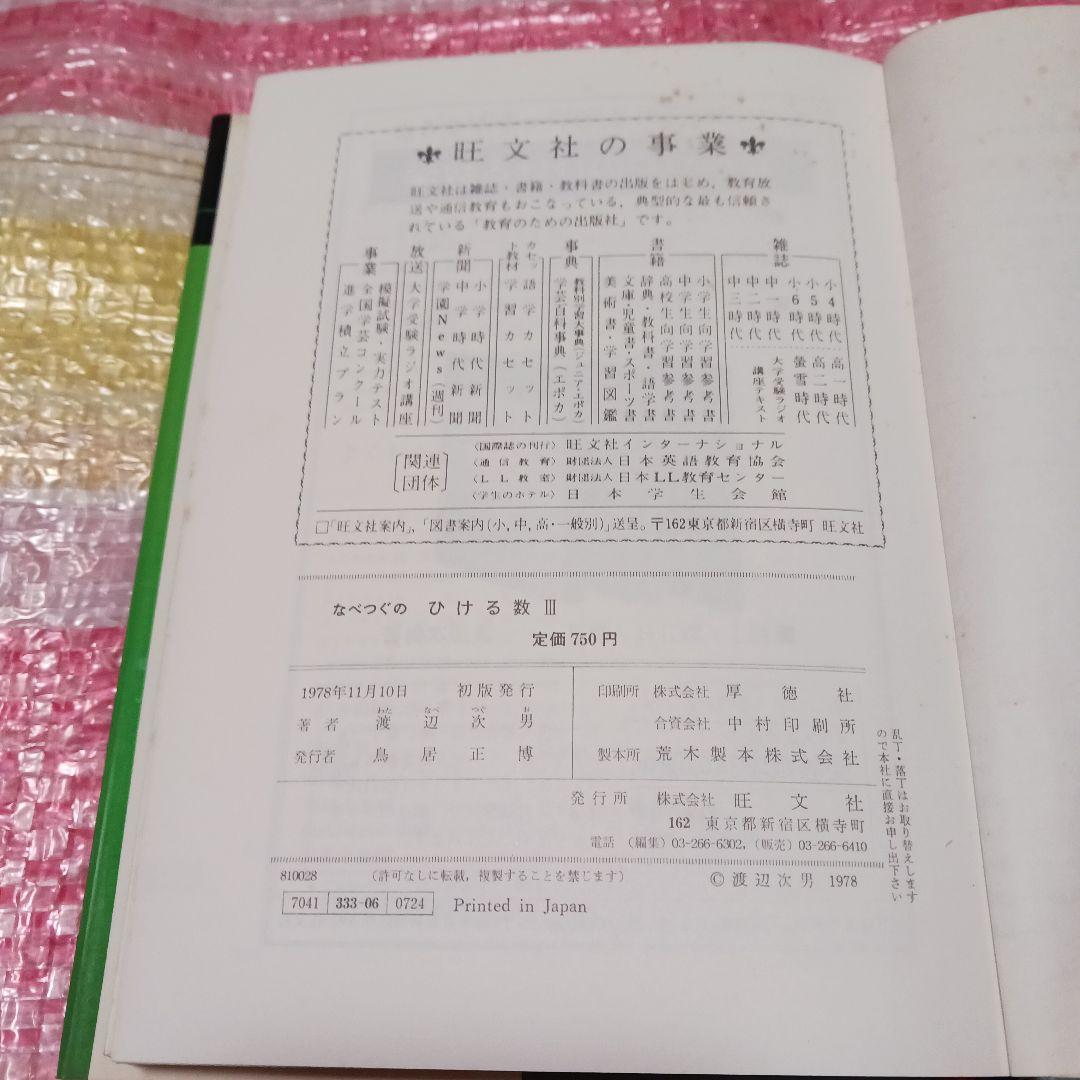 旺文社の事業
旺文社は雑誌・書籍・教科書の出版をはじめ，教育放
送や通信教育もおこなっている，典型的な最も信頼さ
れている「教育のための出版社」です。
雑誌
小4時代
小5時代
小6時代
中一時代
中二時代
中三時代
高一時代
高二時代
螢雪時代
大学受験ラジオ
講座テキスト
書籍
小学生向学習参考書
中学生向学習参考書
高校生向学習参考書
辞典・教科書・語学書
文庫・児童書・スポーツ書
美術書・学習図鑑
事典
教科別学習大事典(ジュニア・エポカ)
学芸百科事典(エポカ)
カセット教材
語学カセット
学習カセット
新聞
小学時代新聞
中学時代新聞
学園News(週刊)
放送
大学受験ラジオ講座
事業
模擬試験・実力テスト
全国学芸コンクール
進学積立プラン
〔関連団体〕
〈国際誌の刊行〉 旺文社インターナショナル
〈通信教育〉 財団法人 日本英語教育協会
〈LL教室〉 財団法人 日本LL教育センター
〈学生のホテル〉 日本学生会館
□「旺文社案内」，「図書案内(小，中，高・一般別)」送呈。〒162東京都新宿区横寺町 旺文社
なべつぐの ひける数III
定価750円
1978年11月10日 初版発行
わた なべ つぐ お
著者 渡辺次男
発行者 鳥居正博
印刷所 株式会社 厚徳社
合資会社 中村印刷所
製本所 荒木製本株式会社
発行所 株式会社 旺文社
162 東京都新宿区横寺町
電話 (編集) 03-266-6302, (販売) 03-266-6410
乱丁・落丁はお取り替えします
ので本社に直接お申し出下さい
810028 (許可なしに転載，複製することを禁じます) © 渡辺次男 1978
7041 333-06 0724 Printed in Japan